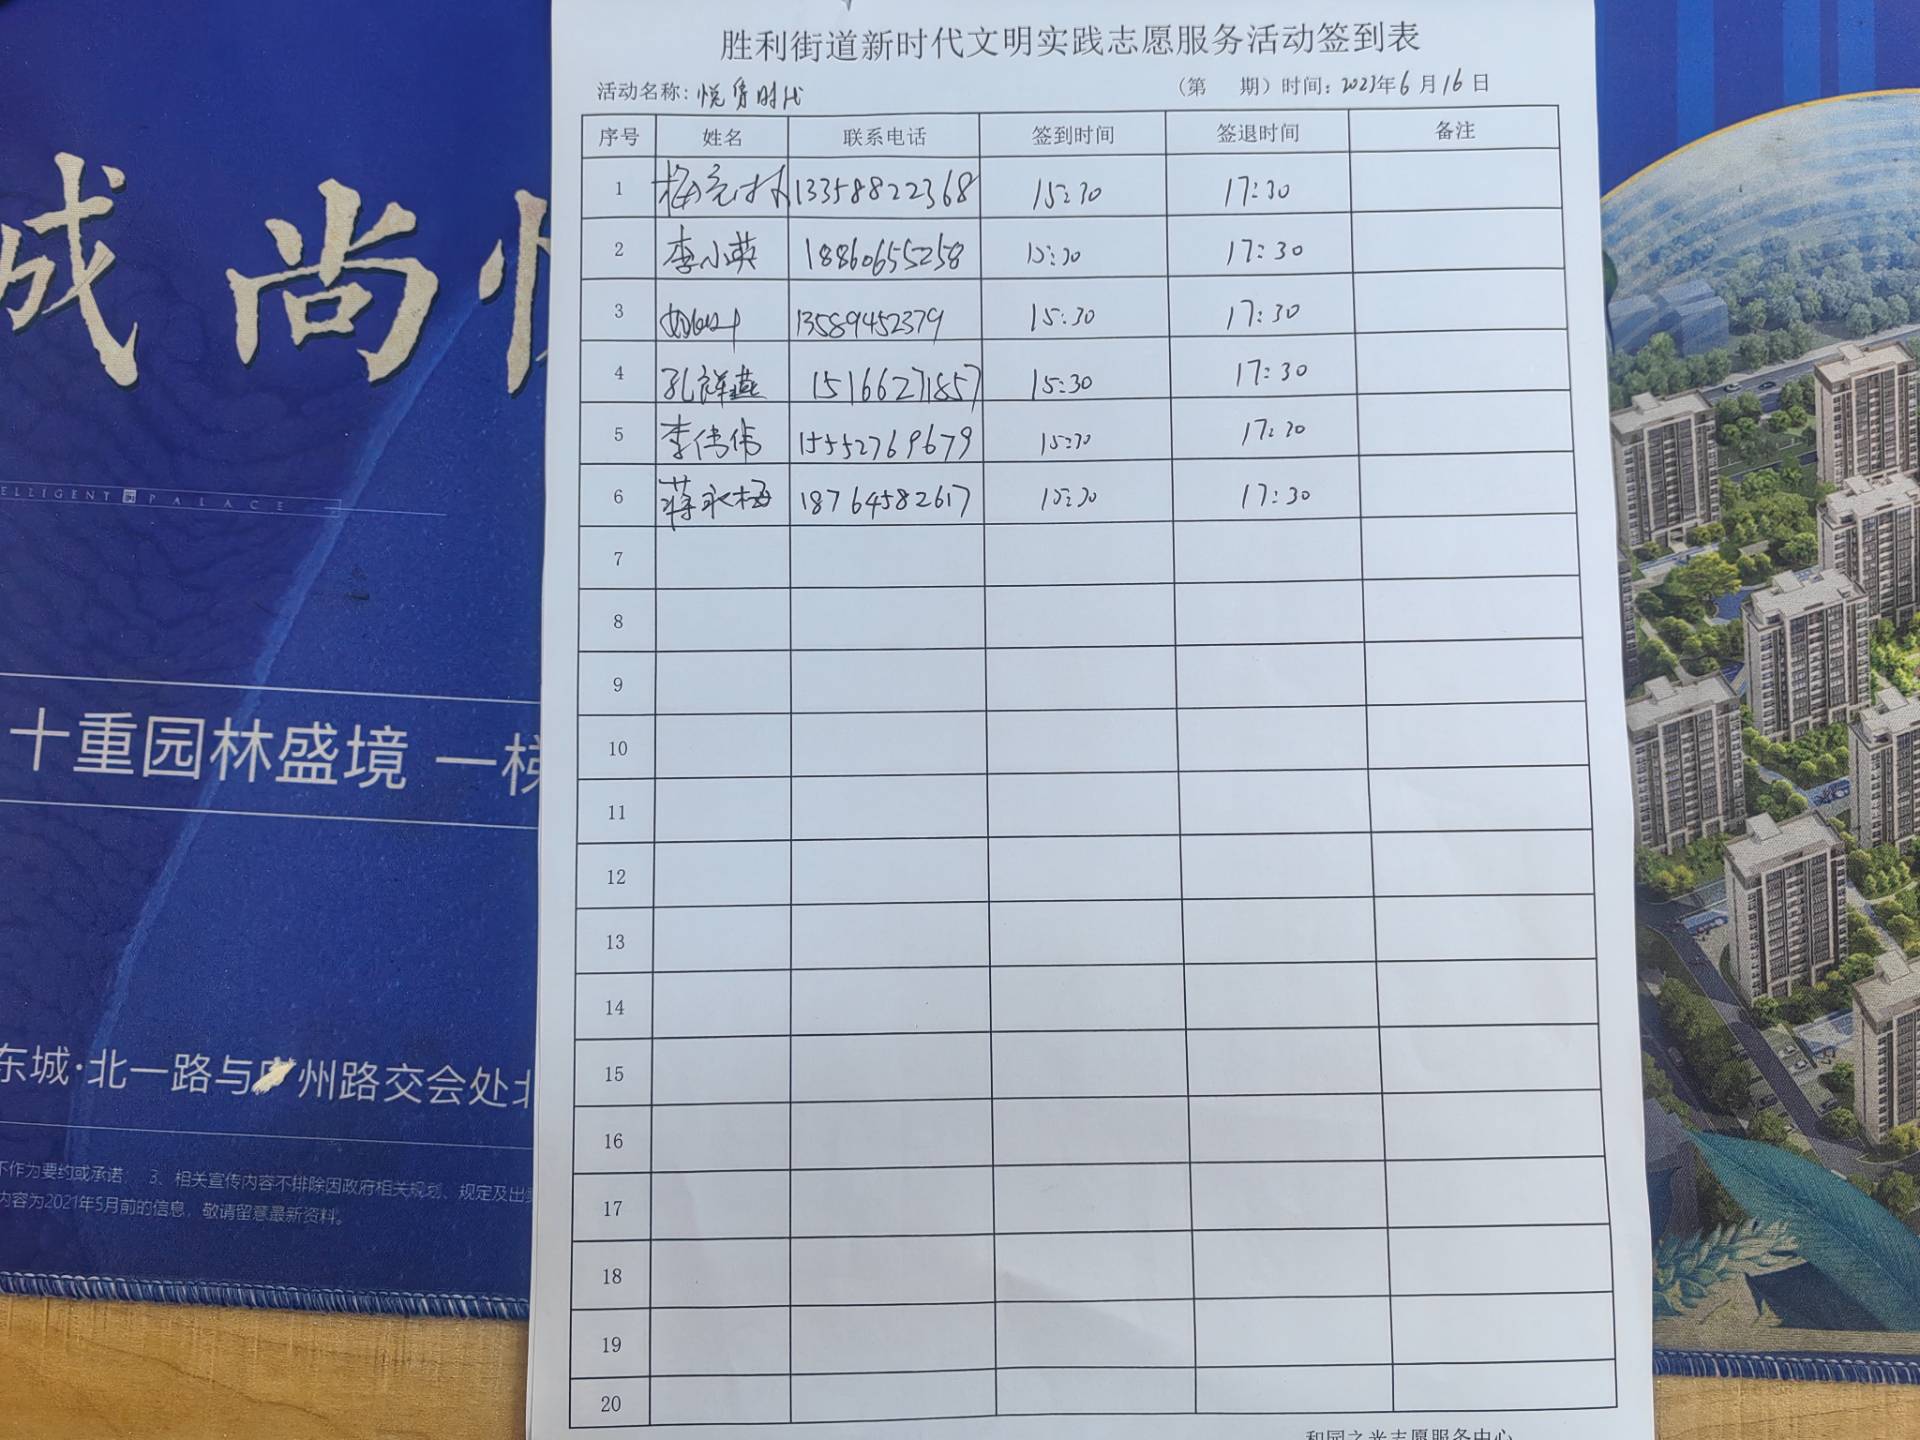 胜利街道新时代文明实践志愿服务活动签到表
活动名称：悦 时代 （第 期）时间：2023年6月16日
序号 姓名 联系电话 签到时间 签退时间 备注
1 13358822368 15:30 17:30
2 李小英 18860655258 15:30 17:30
3 13589452379 15:30 17:30
4 孔祥燕 15166271857 15:30 17:30
5 李伟伟 15552769679 15:30 17:30
6 蒋永梅 18764582617 15:30 17:30
7
8
9
10
11
12
13
14
15
16
17
18
19
20
和园之光志愿服务中心
城 尚
ELLIGENT PALACE
十重园林盛境 一梯
东城·北一路与 州路交会处北
不作为要约或承诺； 3、相关宣传内容不排除因政府相关规划、规定及出
内容为2021年5月前的信息，敬请留意最新资料。